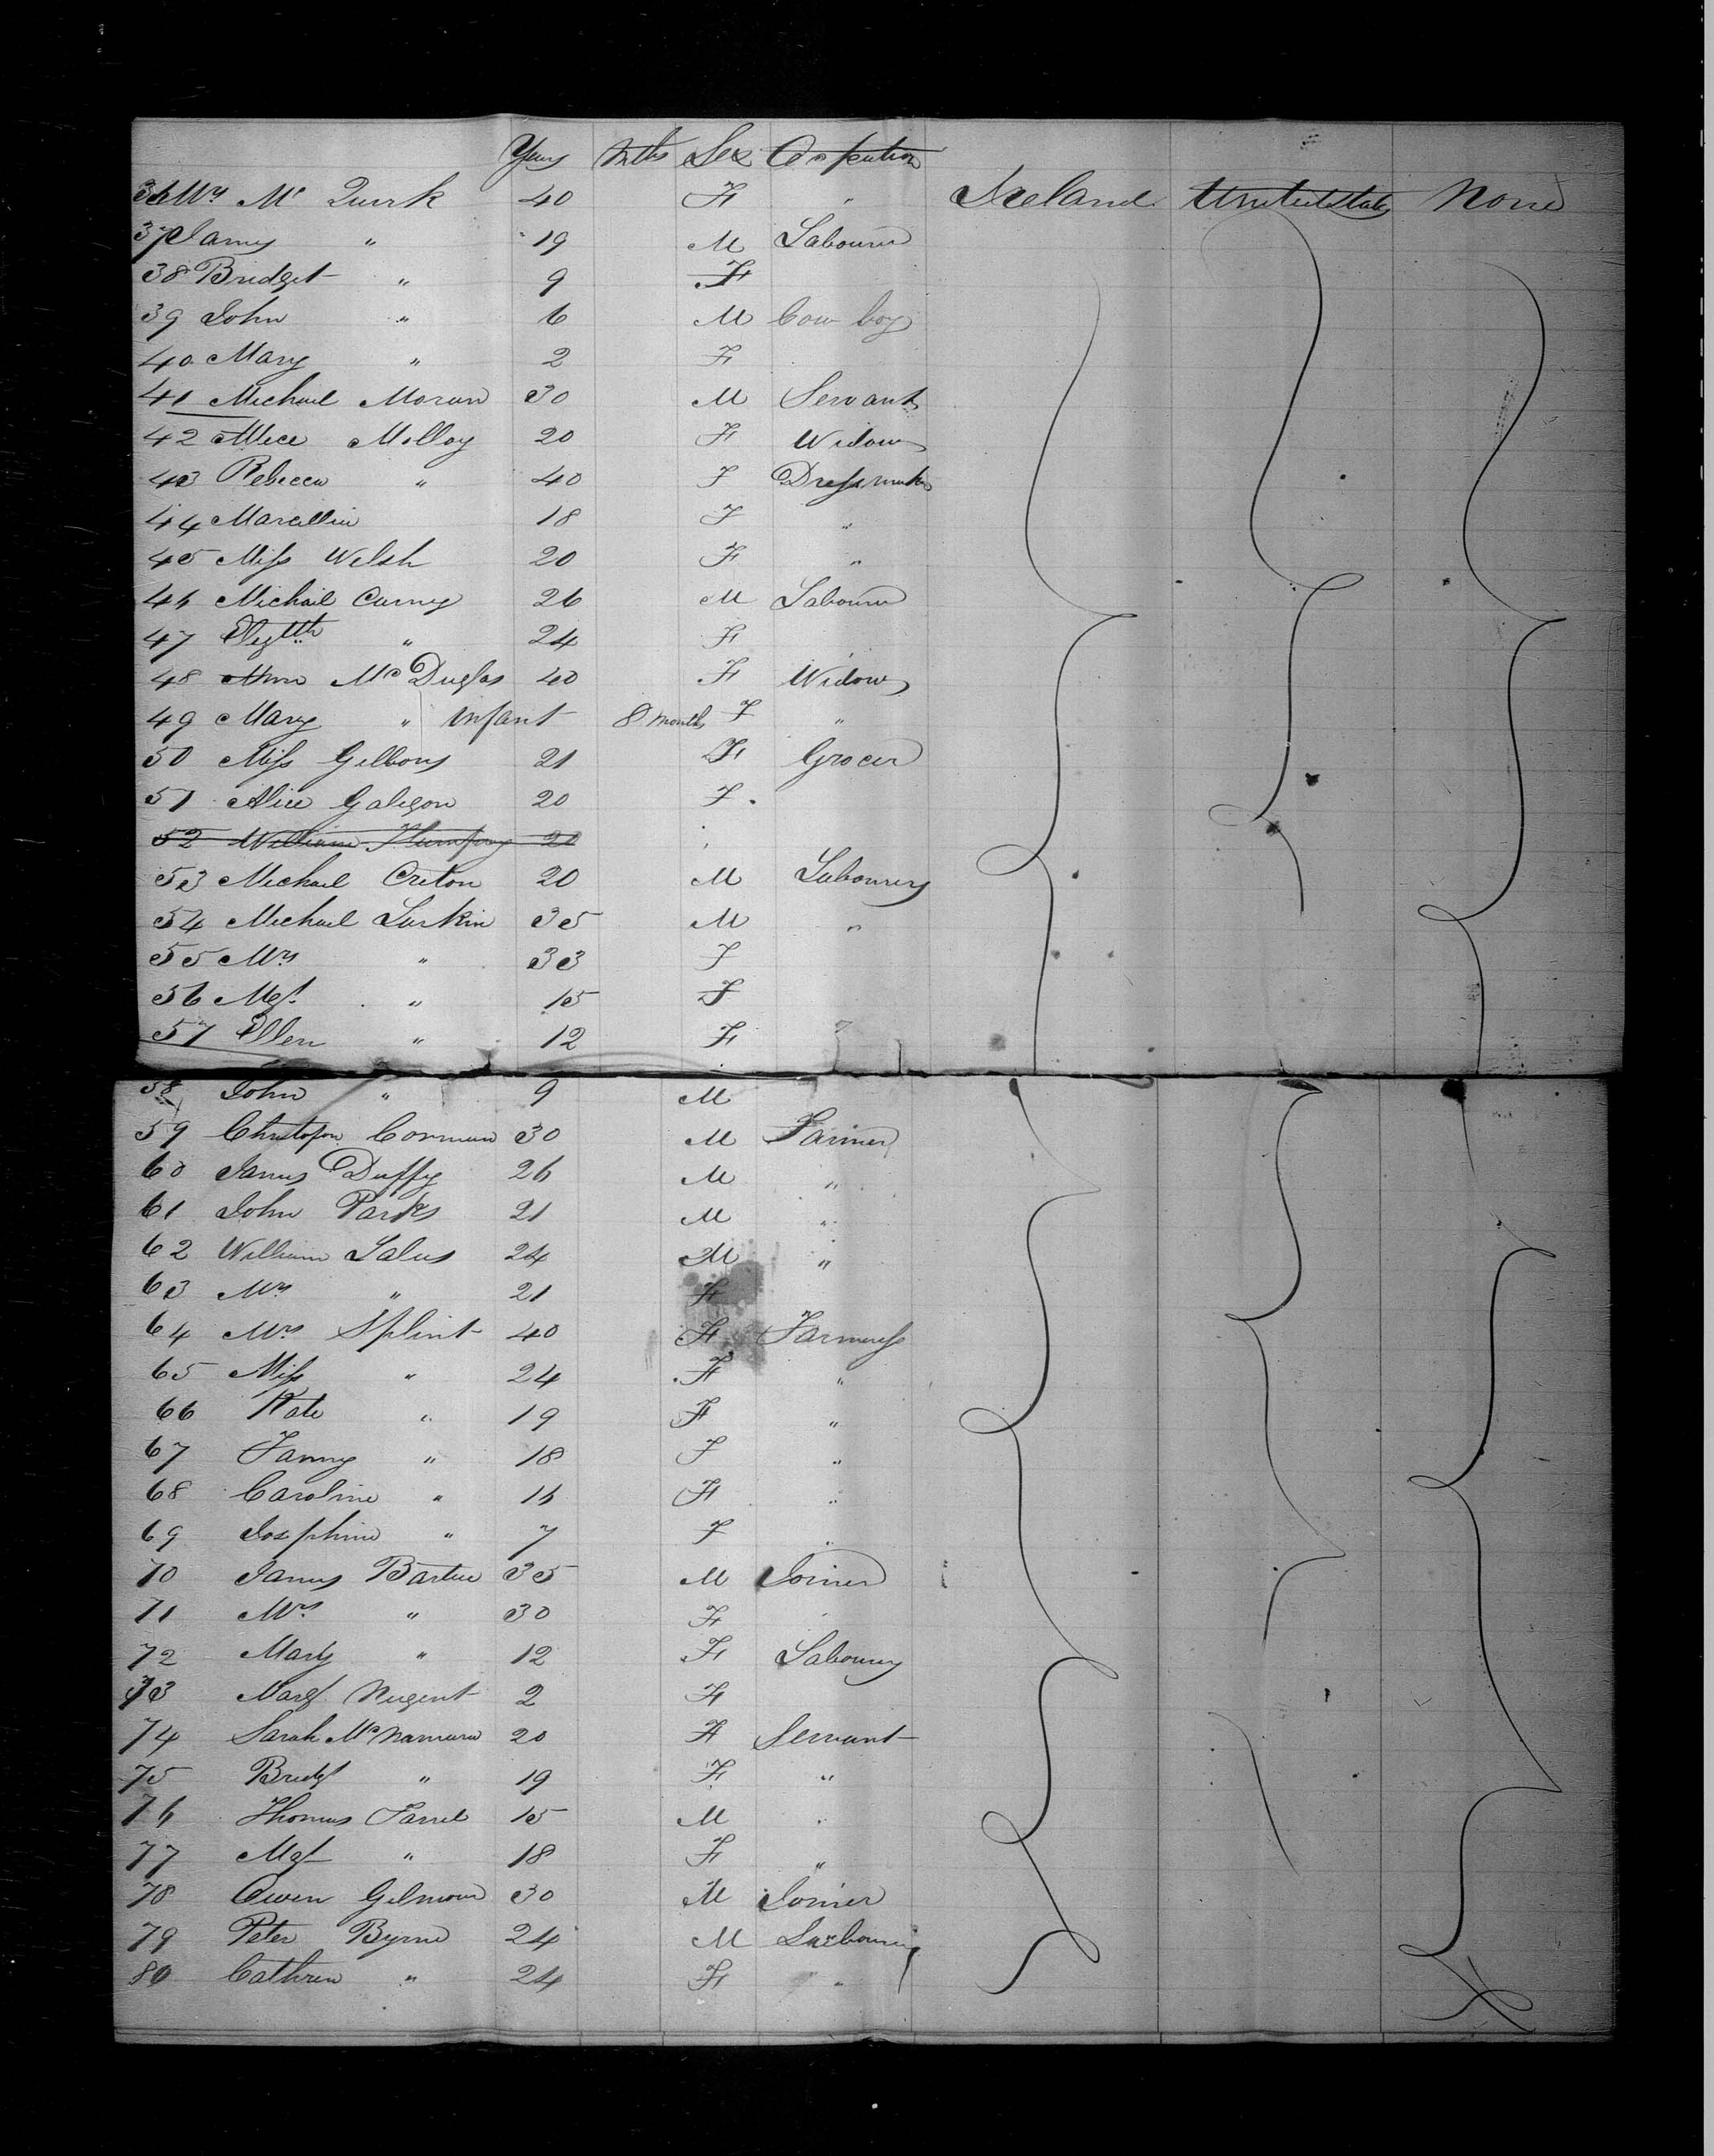 Years Mths Sex Occupation
36 Mrs Mc Quirk 40 F " Ireland United States None
37 James " 19 M Labourer
38 Bridget " 9 F
39 John " 6 M Cow boy
40 Mary " 2 F
41 Michael Moran 30 M Servant
42 Alice Molloy 20 F Widow
43 Rebecca " 40 F Dressmaker
44 18 F "
45 Miss Welsh 20 F "
46 Michail Carney 26 M Labourer
47 " 24 F
48 Ann Mc Duglas 40 F Widow
49 Mary " Infant 8 months F "
50 Miss Gibbons 21 F Grocer
51 Alice Galegon 20 F
52 William Humfray 20
53 Michael Creton 20 M Labourers
54 Michael Larkin 35 M "
55 Mrs " 33 F
56 Mgt " 15 F
57 Ellen " 12 F
58 John " 9 M
59 Corman 30 M Farmer
60 James Duffy 26 M "
61 John Parks 21 M "
62 William Lalus 24 M "
63 Mrs " 21 F
64 Mrs Splint 40 F Farmeress
65 Miss " 24 F "
66 Kate " 19 F "
67 Fanny " 18 F "
68 Caroline " 16 F "
69 Josephine " 7 F "
70 James Bartue 35 M Joiner
71 Mrs " 30 F
72 Mary " 12 F Labourer
73 Margt Nugent 2 F
74 Sarah McNamara 20 F Servant
75 Bridgt " 19 F "
76 Thomas Farrel 15 M "
77 Mgt " 18 F "
78 Owen Gilmour 30 M Joiner
79 Peter Byrne 24 M
80 Cathren " 24 F "